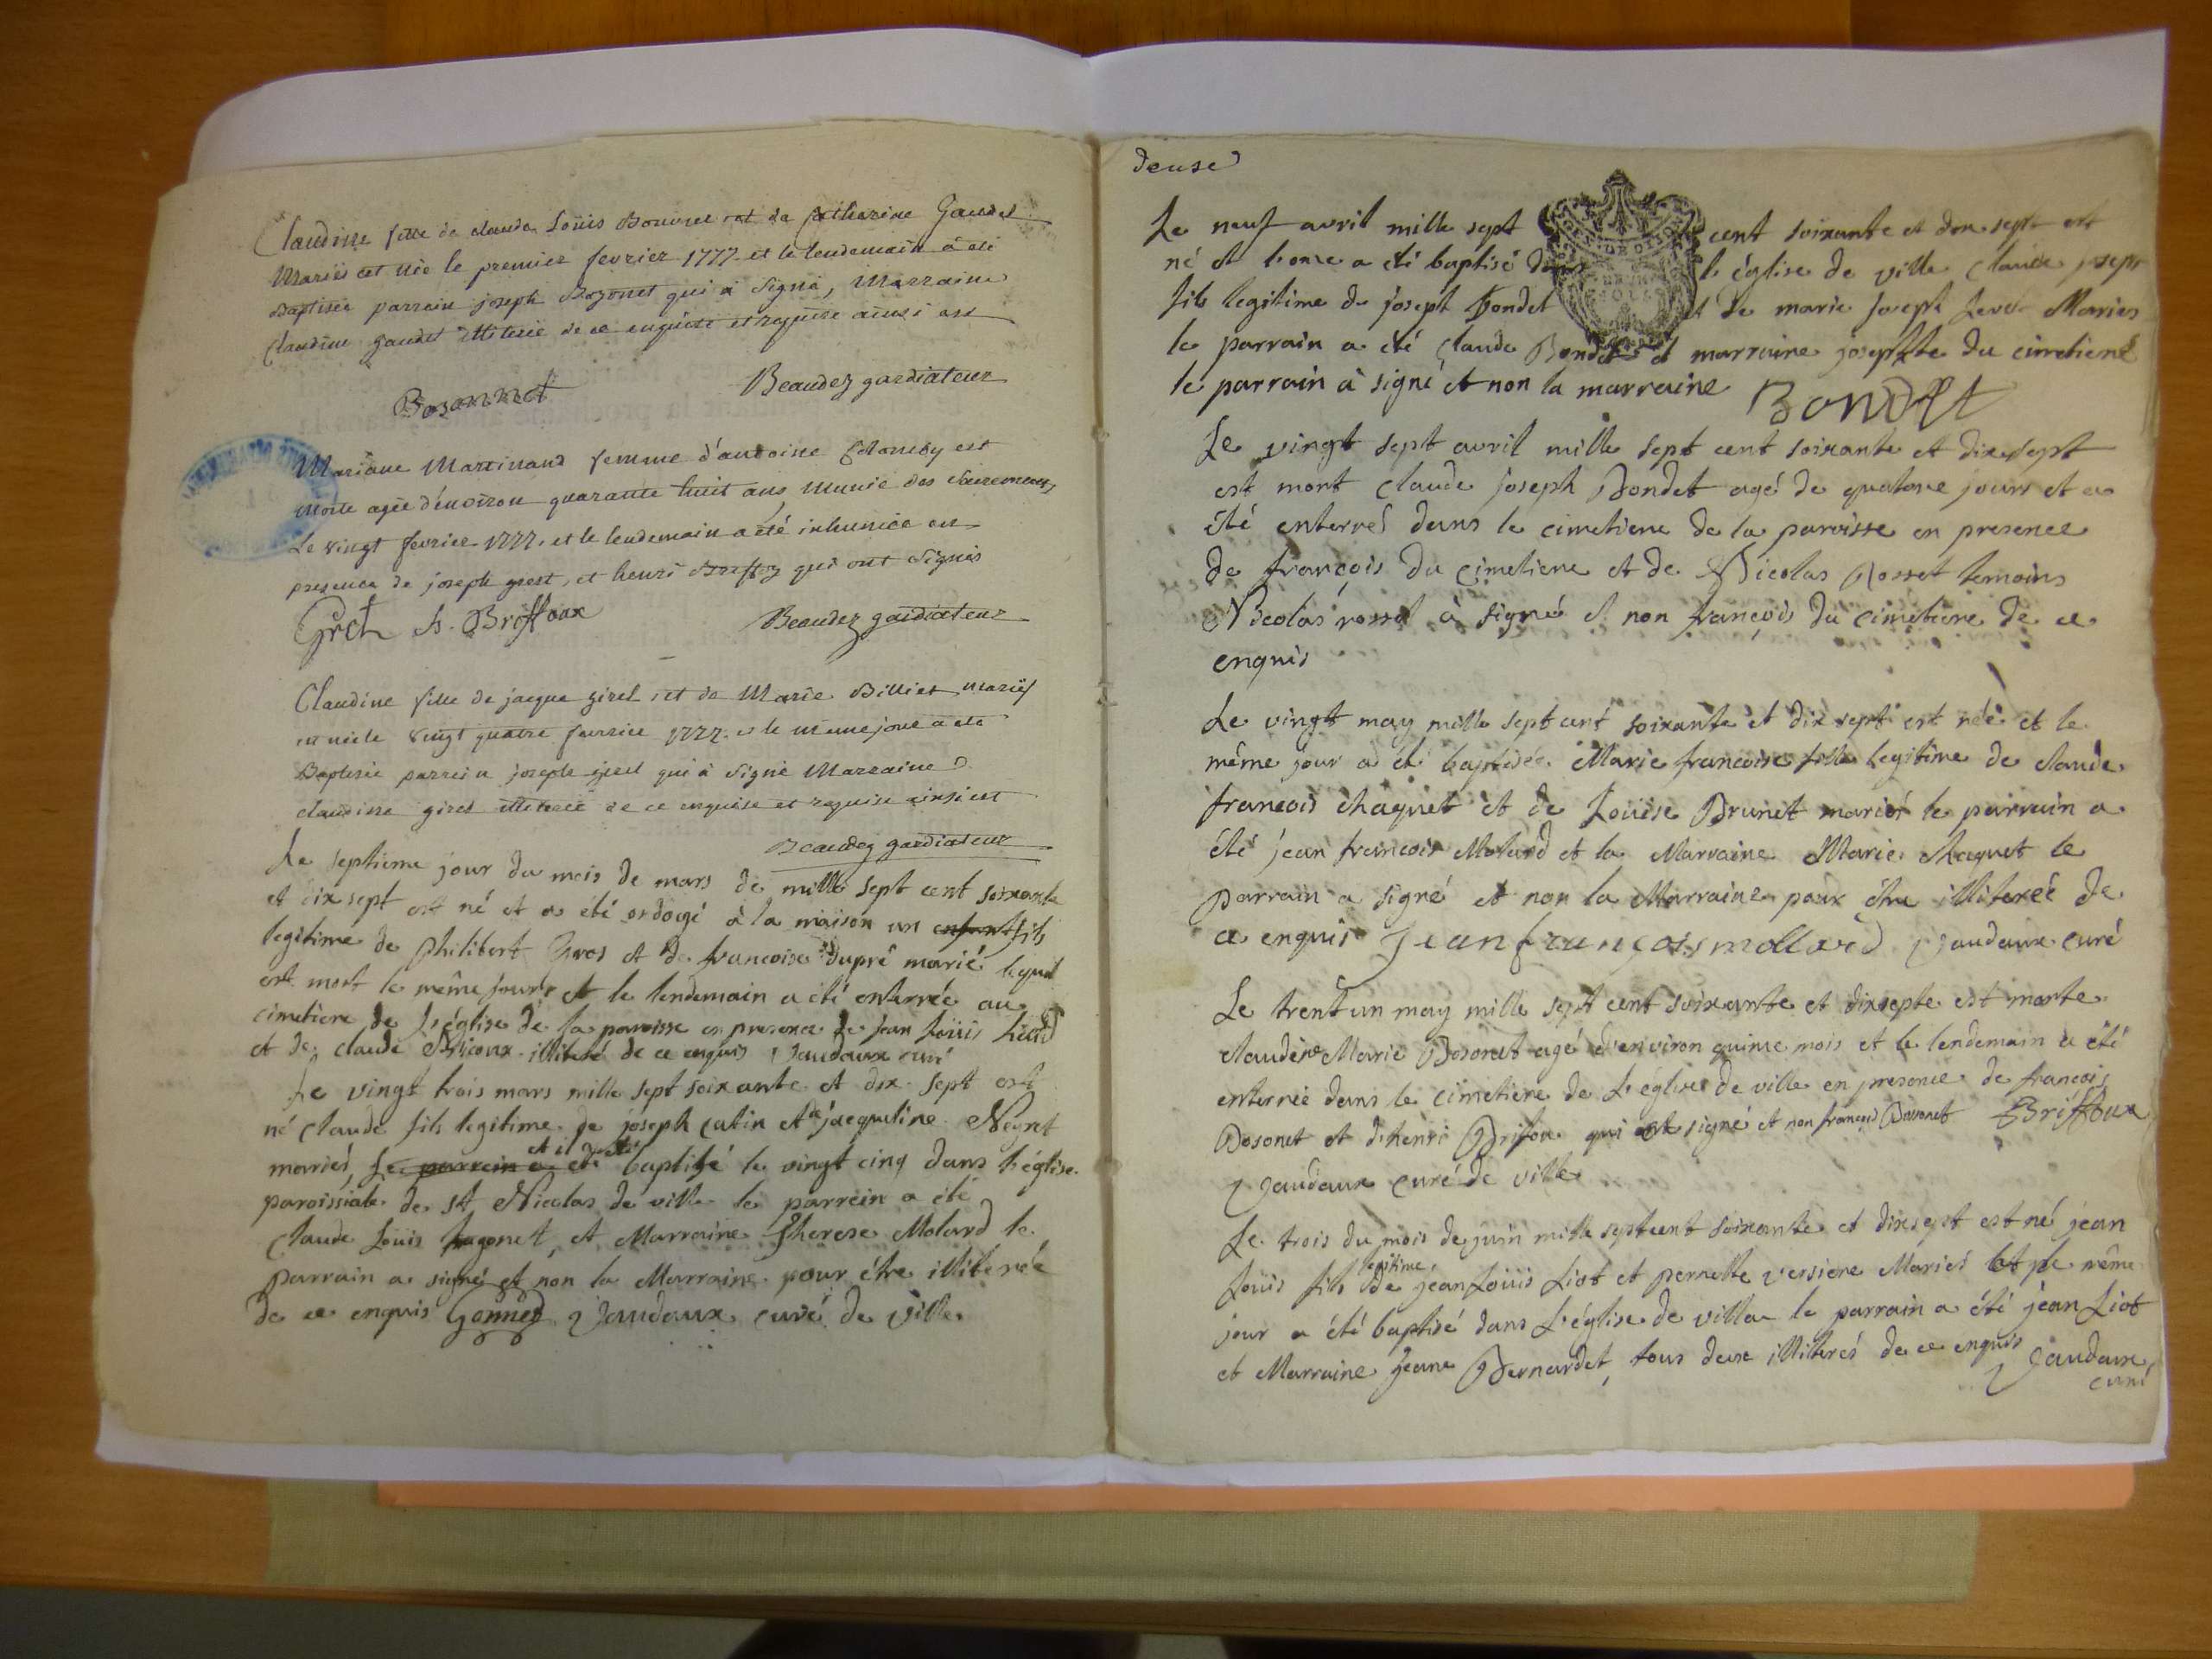 Claudine fille de claude Loüis Bouvret et de Catharine Gaudet
Mariës est née le premier fevrier 1777 et le lendemain à été
Baptisée parrain joseph Bozonet qui à signé, Marraine
Claudine gaudet illiterée de ce enquise et requise ainsi est
Bosonnet
Beaudez gardiateur
Mariane Martinand femme d'antoine est
morte agée d'environ quarante huit ans munie des Sacremens
Le vingt fevrier 1777. et le lendemain a été inhumée en
presence de joseph et henri qui ont signés
h. Briffoax
Beaudez gardiateur
Claudine fille de jacque girel et de Marie Billiet mariës
est née le vingt quatre fevrier 1777. et le meme jour a été
Baptisée parrain joseph girel qui à signé Marraine
claudine girel illiterée de ce enquise et requise ainsi est
Beaudez gardiateur
Le septieme jour du mois de mars de mille sept cent soixante
et dix sept est né et a été ondoyé à la maison un enfant fils
legitime de Philibert et de francoise dupré marié lequel
est mort le même jour et le lendemain a été enterrée au
cimetiere de L'église de la paroisse en presence de jean Loüis
et de claude illiteré de ce enquis Jaudaux curé
Le vingt trois mars mille sept soixante et dix sept est
né claude fils legitime de joseph catin et de jacqueline Neyret
mariés, Le parrain a et il a été baptisé le vingt cinq dans l'église
paroissiale de St Nicolas de ville le parrein a été
Claude Loüis et Marraine Therese Molard le
parrain a signé et non la Marraine pour être illiterée
de ce enquis Gonned Jaudaux curé de ville
deuse
Le neuf avril mille sept cent soixante et dix sept est
né et l'onze a été baptisé dans l'église de ville claude joseph
fils legitime de josept Bondet et de marie joseph Mariés
le parrain a été Claude Bondet et marraine josephte du cimetiere
le parrain à signé et non la marraine Bondet
Le vingt sept avril mille sept cent soixante et dix sept
est mort claude joseph Bondet agé de quatorze jours et a
été enterré dans le cimetiere de la paroisse en presence
de françois du cimetiere et de Nicolas Rosset temoins
Nicolas rosset à signé et non françois du cimetiere de ce
enquis
Le vingt may mille sept cent soixante et dix sept est née et le
même jour a été baptisée Marie francoise fille legitime de claude
francois chaquet et de Loüise Brunet mariés le parrain a
été jean francois Molard et la Marraine Marie chaquet le
parrain a signé et non la Marraine pour être illiterée de
ce enquis Jean françois mollard Jaudaux curé
Le trent un may mille sept cent soixante et dixsepte est morte
claudine Marie Bosonet agé d'environ quinze mois et le lendemain a été
enterrée dans le cimetiere de L'église de ville en presence de francois
Bosonet et d'henri Brifou qui ont signé et non francois Bosonet Briffoux
Jaudaux curé de ville
Le trois du mois de juin mille septcent soixante et dixsept est né jean
Loüis fils legitime de jean Loüis Liot et pernette versiere Mariés et le même
jour a été baptisé dans L'église de ville le parrain a été jean Liot
et Marraine jeane Bernardet, tous deux illiterés de ce enquis Jaudaux
curé